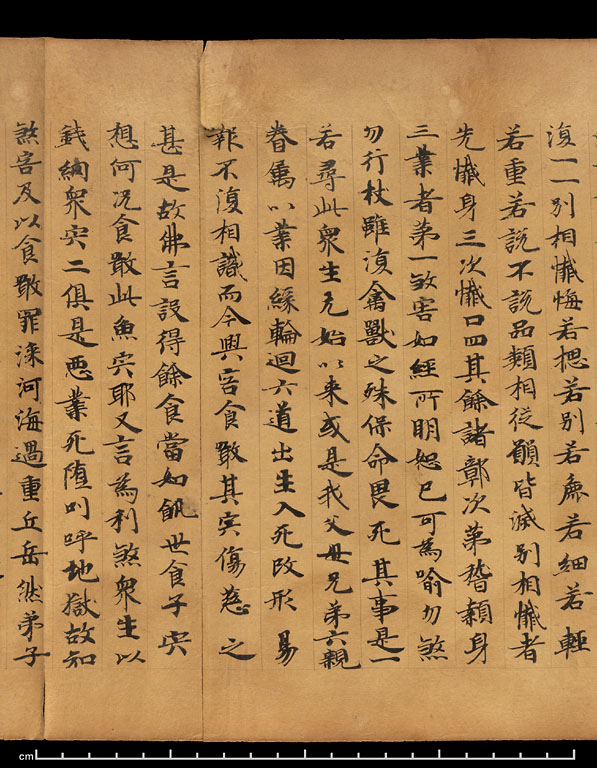 復一一別相懺悔若揔若別若麁若細若輕
若重若說不說品類相從願皆滅別相懺者
先懺身三次懺口四其餘諸鄣次第稽顙身
三業者第一煞害如經所明恕己可為喻勿煞
勿行杖雖復禽獸之殊保命畏死其事是一
若尋此衆生无始以来或是我父母兄弟六親
眷屬以業因緣輪迴六道出生入死改形易
報不復相識而今興害食噉其宍傷慈之
甚是故佛言設得餘食當如飢世食子宍
想何況食噉此魚宍耶又言為利煞衆生以
錢網衆宍二俱是惡業死墮叫呼地獄故知
煞害及以食噉罪深河海過重丘岳然弟子
cm